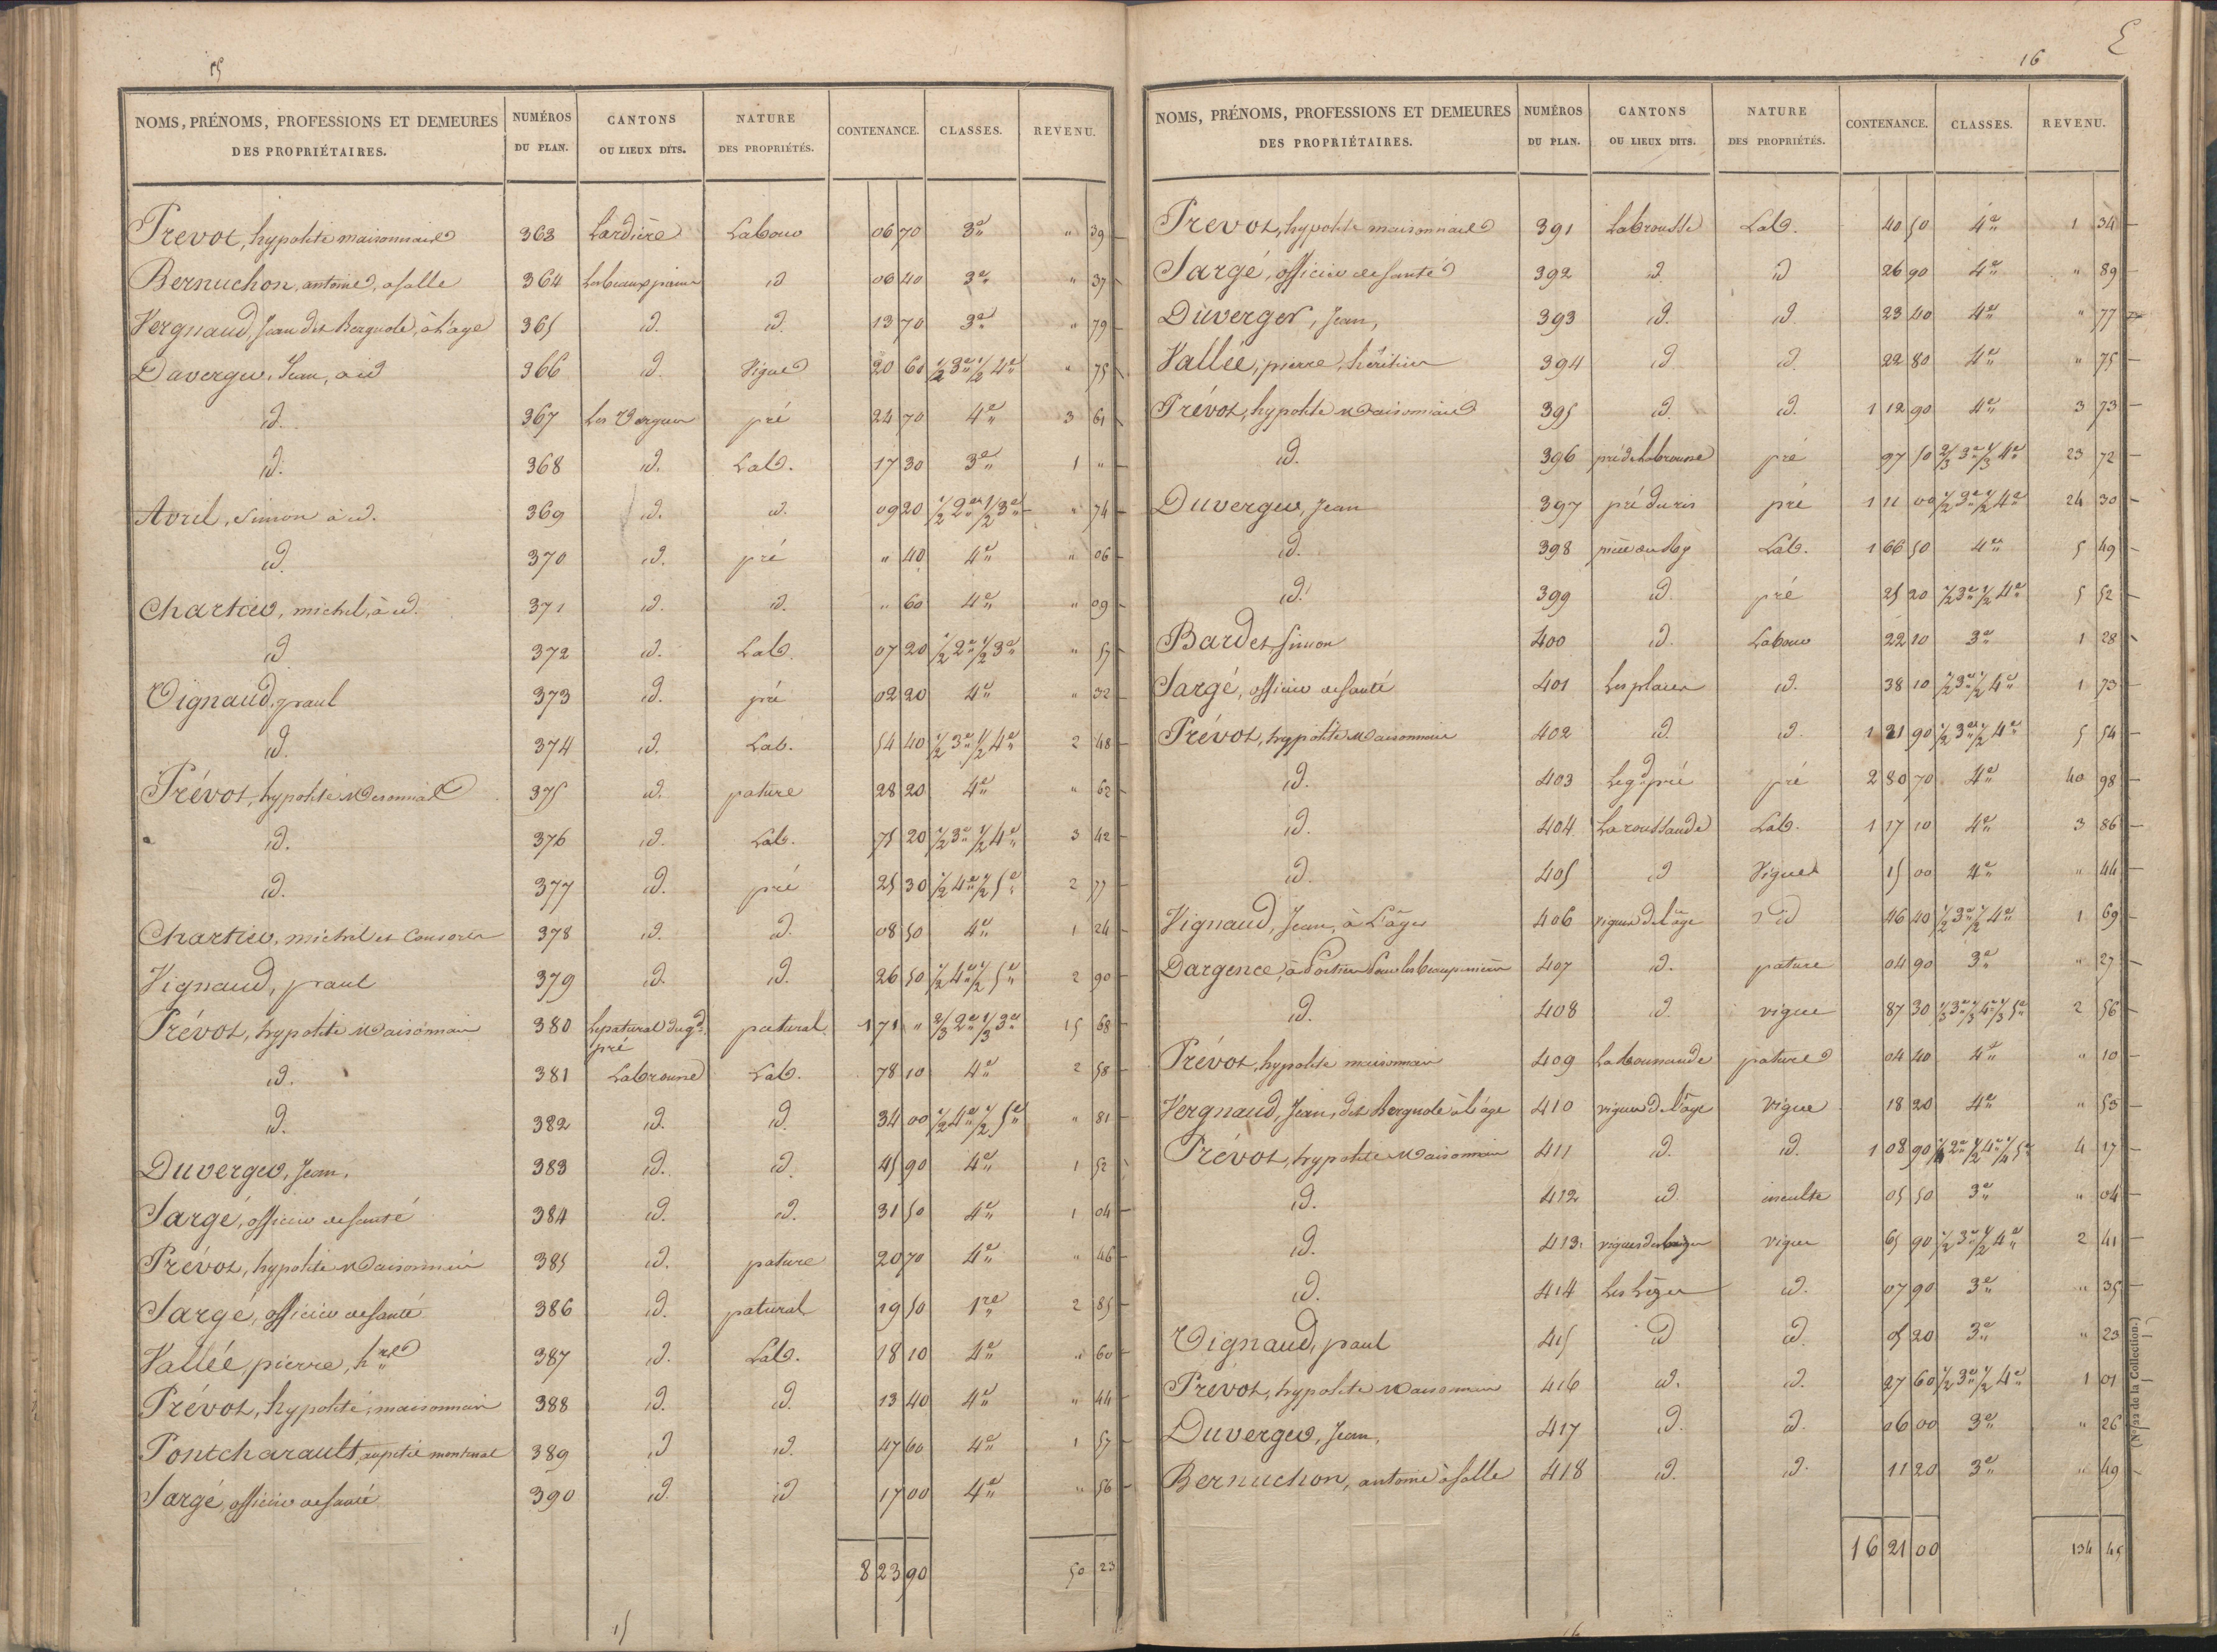 15
NOMS, PRÉNOMS, PROFESSIONS ET DEMEURES DES PROPRIÉTAIRES. NUMÉROS DU PLAN. CANTONS OU LIEUX DITS. NATURE DES PROPRIÉTÉS. CONTENANCE. CLASSES. REVENU.
Prevot, hypolite maisonnais 363 Lardière Labour 06 70 3e " 39
Bernuchon, antoine, a salle 364 Les beaux id 06 40 3e " 37
Vergnaud, Jean dit Bergnole, à l'age 365 id. id. 13 70 3e " 79
Davergier, Jean, a id 366 id. Vigne 20 60 1/2 3e 1/2 4e " 75
id. 367 Les Vergnes pré 24 70 4e 3 61
id. 368 id. Lab. 17 30 3e 1 "
Avril, Simon à id. 369 id. id. 09 20 1/2 2e 1/2 3e " 74
id. 370 id. pré " 40 4e " 06
Chartier, michel, à id. 371 id. id. " 60 4e " 09
id 372 id. Lab. 07 20 1/2 2e 1/2 3e " 57
Vignaud, paul 373 id. pré 02 20 4e " 32
id. 374 id. Lab. 54 40 1/2 3e 1/2 4e 2 48
Prévot, hypolite 375 id. pature 28 20 4e " 62
id. 376 id. Lab. 75 20 1/2 3e 1/2 4e 3 42
id. 377 id. pré 25 30 1/2 4e 1/2 5e 2 77
Chartier, michel et Consorts 378 id. id. 08 50 4e 1 24
Vignaud, paul 379 id. id. 26 50 1/2 4e 1/2 5e 2 90
Prévot, hypolite Maisonnais 380 Le patural du gd. pré patural 1 71 " 2/3 2e 1/3 3e 15 68
id. 381 Labrousse Lab. 78 10 4e 2 58
id. 382 id. id. 34 00 1/2 4e 1/2 5e " 81
Duverger, Jean, 383 id. id. 45 90 4e 1 52
Sargé, officier de santé 384 id. id. 31 50 4e 1 04
Prévot, hypolite Maisonnais 385 id. pature 20 70 4e " 46
Sargé, officier de santé 386 id. patural 19 50 1re 2 85
Vallée pierre, hre 387 id. Lab. 18 10 4e " 60
Prévot, hypolite, maisonnais 388 id. id. 13 40 4e " 44
Pontcharault, au petit 389 id id. 47 60 4e 1 57
Sargé, officier de santé 390 id. id 17 00 4e " 56
8 23 90 50 23
15
16
NOMS, PRÉNOMS, PROFESSIONS ET DEMEURES DES PROPRIÉTAIRES. NUMÉROS DU PLAN. CANTONS OU LIEUX DITS. NATURE DES PROPRIÉTÉS. CONTENANCE. CLASSES. REVENU.
Prevot, hypolite maisonnais 391 Labrousse Lab. 40 50 4e 1 34
Sargé, officier de santé 392 id. id 26 90 4e " 89
Duverger, Jean, 393 id. id. 23 40 4e " 77
Vallée, pierre, héritier 394 id id. 22 80 4e " 75
Prévot, hypolite Maisonnais 395 id. id. 1 12 90 4e 3 73
id. 396 pré de Labrousse pré 97 50 2/3 3e 1/3 4e 23 72
Duverger, Jean 397 pré du ris pré 1 11 00 1/2 3e 1/2 4e 24 30
id. 398 Lab. 1 66 50 4e 5 49
id. 399 id. pré 25 20 1/2 3e 1/2 4e 5 52
Bardet, Simon 400 id. Labour 22 10 3e 1 28
Sargé, officier de santé 401 Les places id. 38 10 1/2 3e 1/2 4e 1 73
Prévot, hypolite Maisonnais 402 id. id. 1 21 90 1/2 3e 1/2 4e 5 54
id. 403 Le gd pré pré 2 80 70 4e 40 98
id. 404 La roussaude Lab. 1 17 10 4e 3 86
id. 405 id Vigne 15 00 4e " 44
Vignaud, Jean, à L'âge 406 vignes de l'âge id 46 40 1/2 3e 1/2 4e 1 69
Dargence, à Poitiers 407 id. pature 04 90 3e " 27
id. 408 id vigne 87 30 1/3 3e 1/3 4e 1/3 5e 2 56
Prévot, hypolite maisonnais 409 pature 04 40 4e " 10
Vergnaud, Jean, dit Bergnole à l'âge 410 vignes de l'âge Vigne 18 20 4e " 53
Prévot, hypolite Maisonnais 411 id. id. 1 08 90 1/4 2e 1/2 4e 1/4 5e 4 17
id. 412 id inculte 05 50 3e " 04
id. 413 vignes des vigne 65 90 1/2 3e 1/2 4e 2 41
id. 414 Les Léger id. 07 90 3e " 35
Vignaud, paul 415 id id. 05 20 3e " 23
Prévot, hypolite Maisonnais 416 id. id. 27 60 1/2 3e 1/2 4e 1 01
Duverger, Jean, 417 id. id. 06 00 3e " 26
Bernuchon, antoine à salle 418 id. id. 11 20 3e " 49
16 21 00 134 45
(No 22 de la Collection.)
16